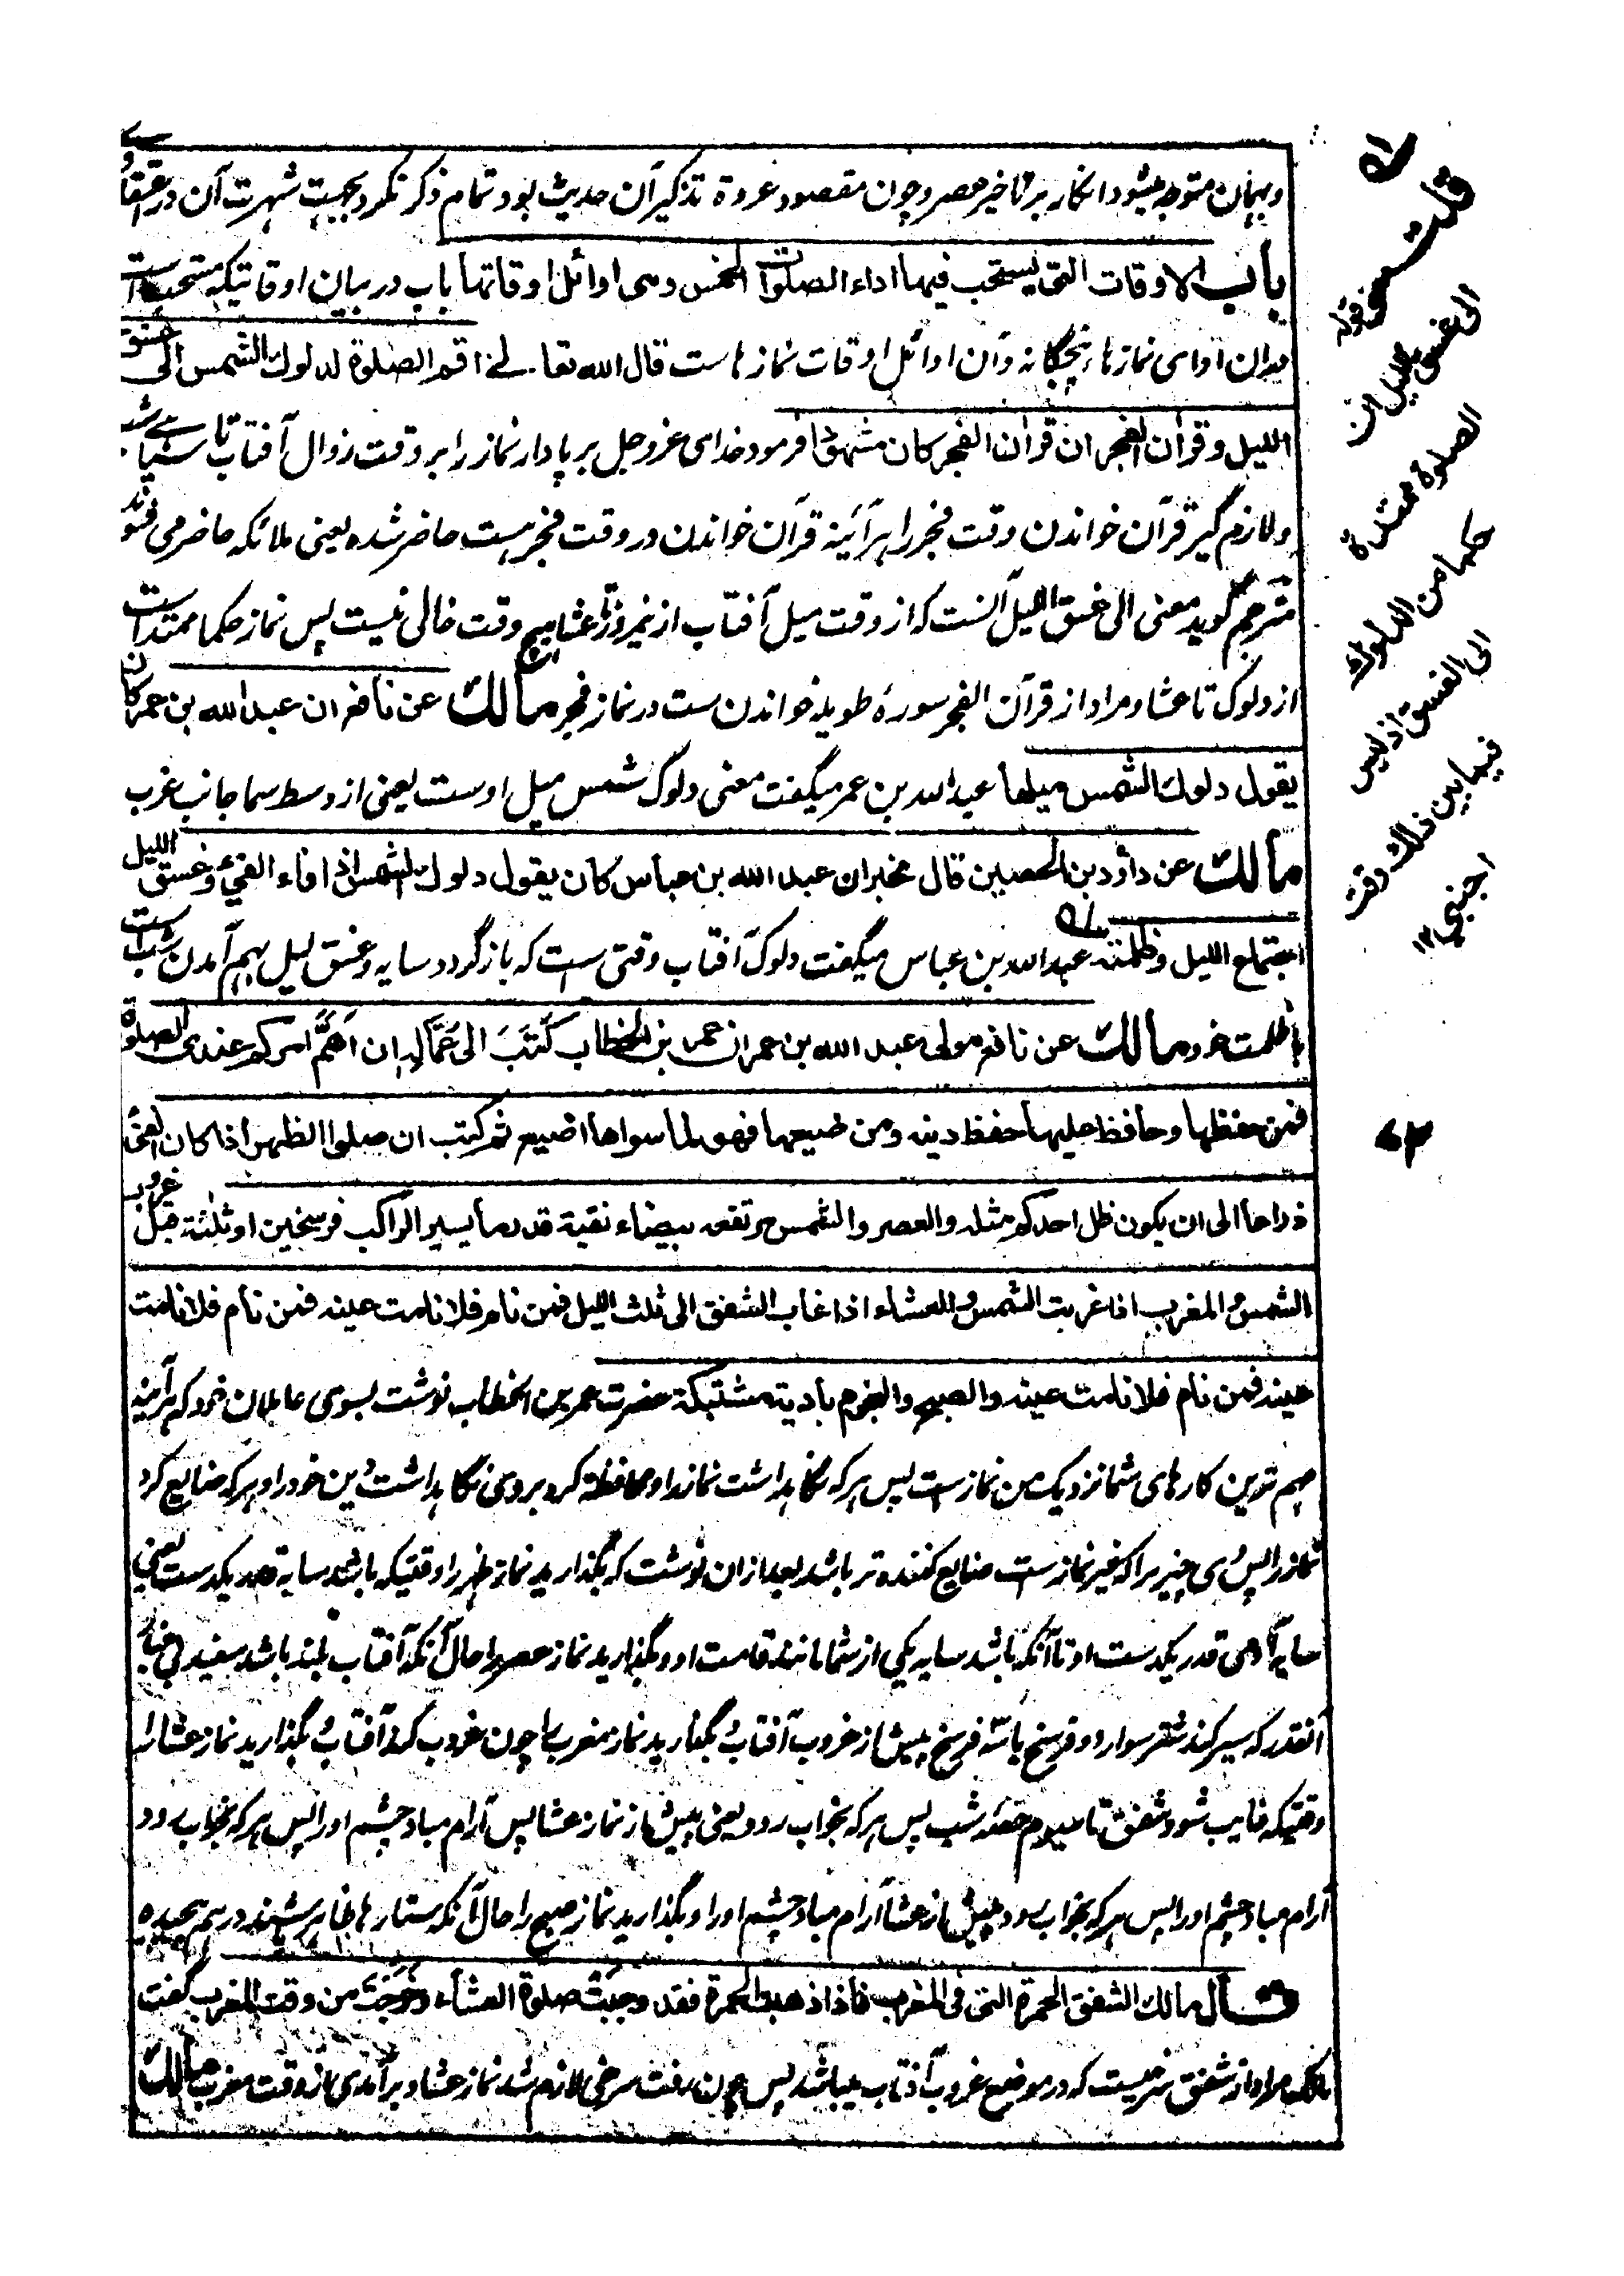 وبهمان متوجه میشود انکار بر تاخیر عصر وچون مقصود عروة تذکیر آن حدیث بود تمام ذکر نکرد بجهت شهرت آن در
باب الاوقات التی یستحب فیها اداء الصلوات الخمس وهی اوائل اوقاتها باب در بیان اوقاتیکه مستحب است
دران ادای نمازهاء پنجگانه وآن اوائل اوقات نمازها ست قال الله تعالے اقم الصلوة لدلوك الشمس الی غسق
اللیل وقرآن الفجر ان قرآن الفجر کان مشهودا فرمود خدای عزوجل برپا دار نماز را بر وقت زوال آفتاب تا سیاهی شب
ولازم گیر قرآن خواندن وقت فجر را هرآئینه قرآن خواندن در وقت فجر هست حاضر شده یعنی ملائکه حاضر می شوند
مترجم گوید معنی الی غسق اللیل آنست که از وقت میل آفتاب از نیمروز تا عشا هیچ وقت خالی نیست پس نماز حکما ممتد است
از دلوک تا عشا ومراد از قرآن الفجر سورۀ طویله خواندن ست در نماز فجر مالك عن نافع ان عبد الله بن عمر کان
یقول دلوك الشمس میلها عبدالله بن عمر میگفت معنی دلوک شمس میل اوست یعنی از وسط سما جانب غرب
مالك عن داؤد بن الحصین قال مخبر ان عبد الله بن عباس کان یقول دلوك الشمس اذا فاء الفیء وغسق اللیل
اجتماع اللیل وظلمته عبدالله بن عباس میگفت دلوک آفتاب وقتی ست که باز گردد سایه وغسق لیل بهم آمدن شب است
با ظلمت خود مالك عن نافع مولی عبد الله بن عمر ان عمر بن الخطاب کَتَبَ الی عُمَّاله ان اَهَمَّ امرکم عندی الصلوة
فمن حفظها وحافظ علیها حفظ دینه ومن ضیعها فهو لما سواها اضیع ثم کتب ان صلوا الظهر اذا کان الفئ
ذراعا الی ان یکون ظل احدکم مثله والعصر والشمس مرتفعه بیضاء نقیة قدر ما یسیر الراکب فرسخین او ثلثة قبل غروب
الشمس والمغرب اذا غربت الشمس والعشاء اذا غاب الشفق الی ثلث اللیل فمن نام فلا نامت عینه فمن نام فلا نامت
عینه فمن نام فلا نامت عینه والصبح والنجوم بادیة مشتبکة حضرت عمر بن الخطاب نوشت بسوی عاملان خود که هرآئینه
مهم ترین کارهای شما نزدیک من نماز ست پس هر که نگاهداشت نماز را ومحافظة کرد بروی نگاهداشت دین خود را وهر که ضایع کرد
نماز را پس وی چیز را که غیر نماز ست ضایع کننده تر باشد بعد ازان نوشت که بگذارید نماز ظهر را وقتیکه باشد سایه قدر یکدست یعنی
سایه آدمی قدر یکدست او تا آنکه باشد سایه یکی از شما مانند قامت او وبگذارید نماز عصر را حال آنکه آفتاب بلند باشد سفید
آنقدر که سیر کند شتر سوار دو فرسخ یا سه فرسخ پیش از غروب آفتاب وبگذارید نماز مغرب را چون غروب کند آفتاب وبگذارید نماز عشا را
وقتیکه غایب شود شفق تا سیوم حصّه شب پس هر که بخواب رود یعنی پیش از نماز عشا پس آرام مباد چشم او را پس هر که بخواب رود
آرام مباد چشم او را پس هر که بخواب رود پیش از عشا آرام مباد چشم او را وبگذارید نماز صبح را حال آنکه ستارها ظاهر باشند درهم پیچیده
قال مالك الشفق الحمرة التی فی المغرب فاذا ذهبت الحمرة فقد وجبت صلوة العشاء وخرجت من وقت المغرب گفت
مالک مراد از شفق سرخیست که در موضع غروب آفتاب میباشد پس چون رفت سرخی لازم شد نماز عشا وبر آمدی از وقت مغرب مالك
قلت معنی قوله
الی غسق اللیل ان
الصلوة ممتدة
حکما من الدلوك
الی الغسق اذ لیس
فیما بین ذلك وقت
اجنبی ۱۲